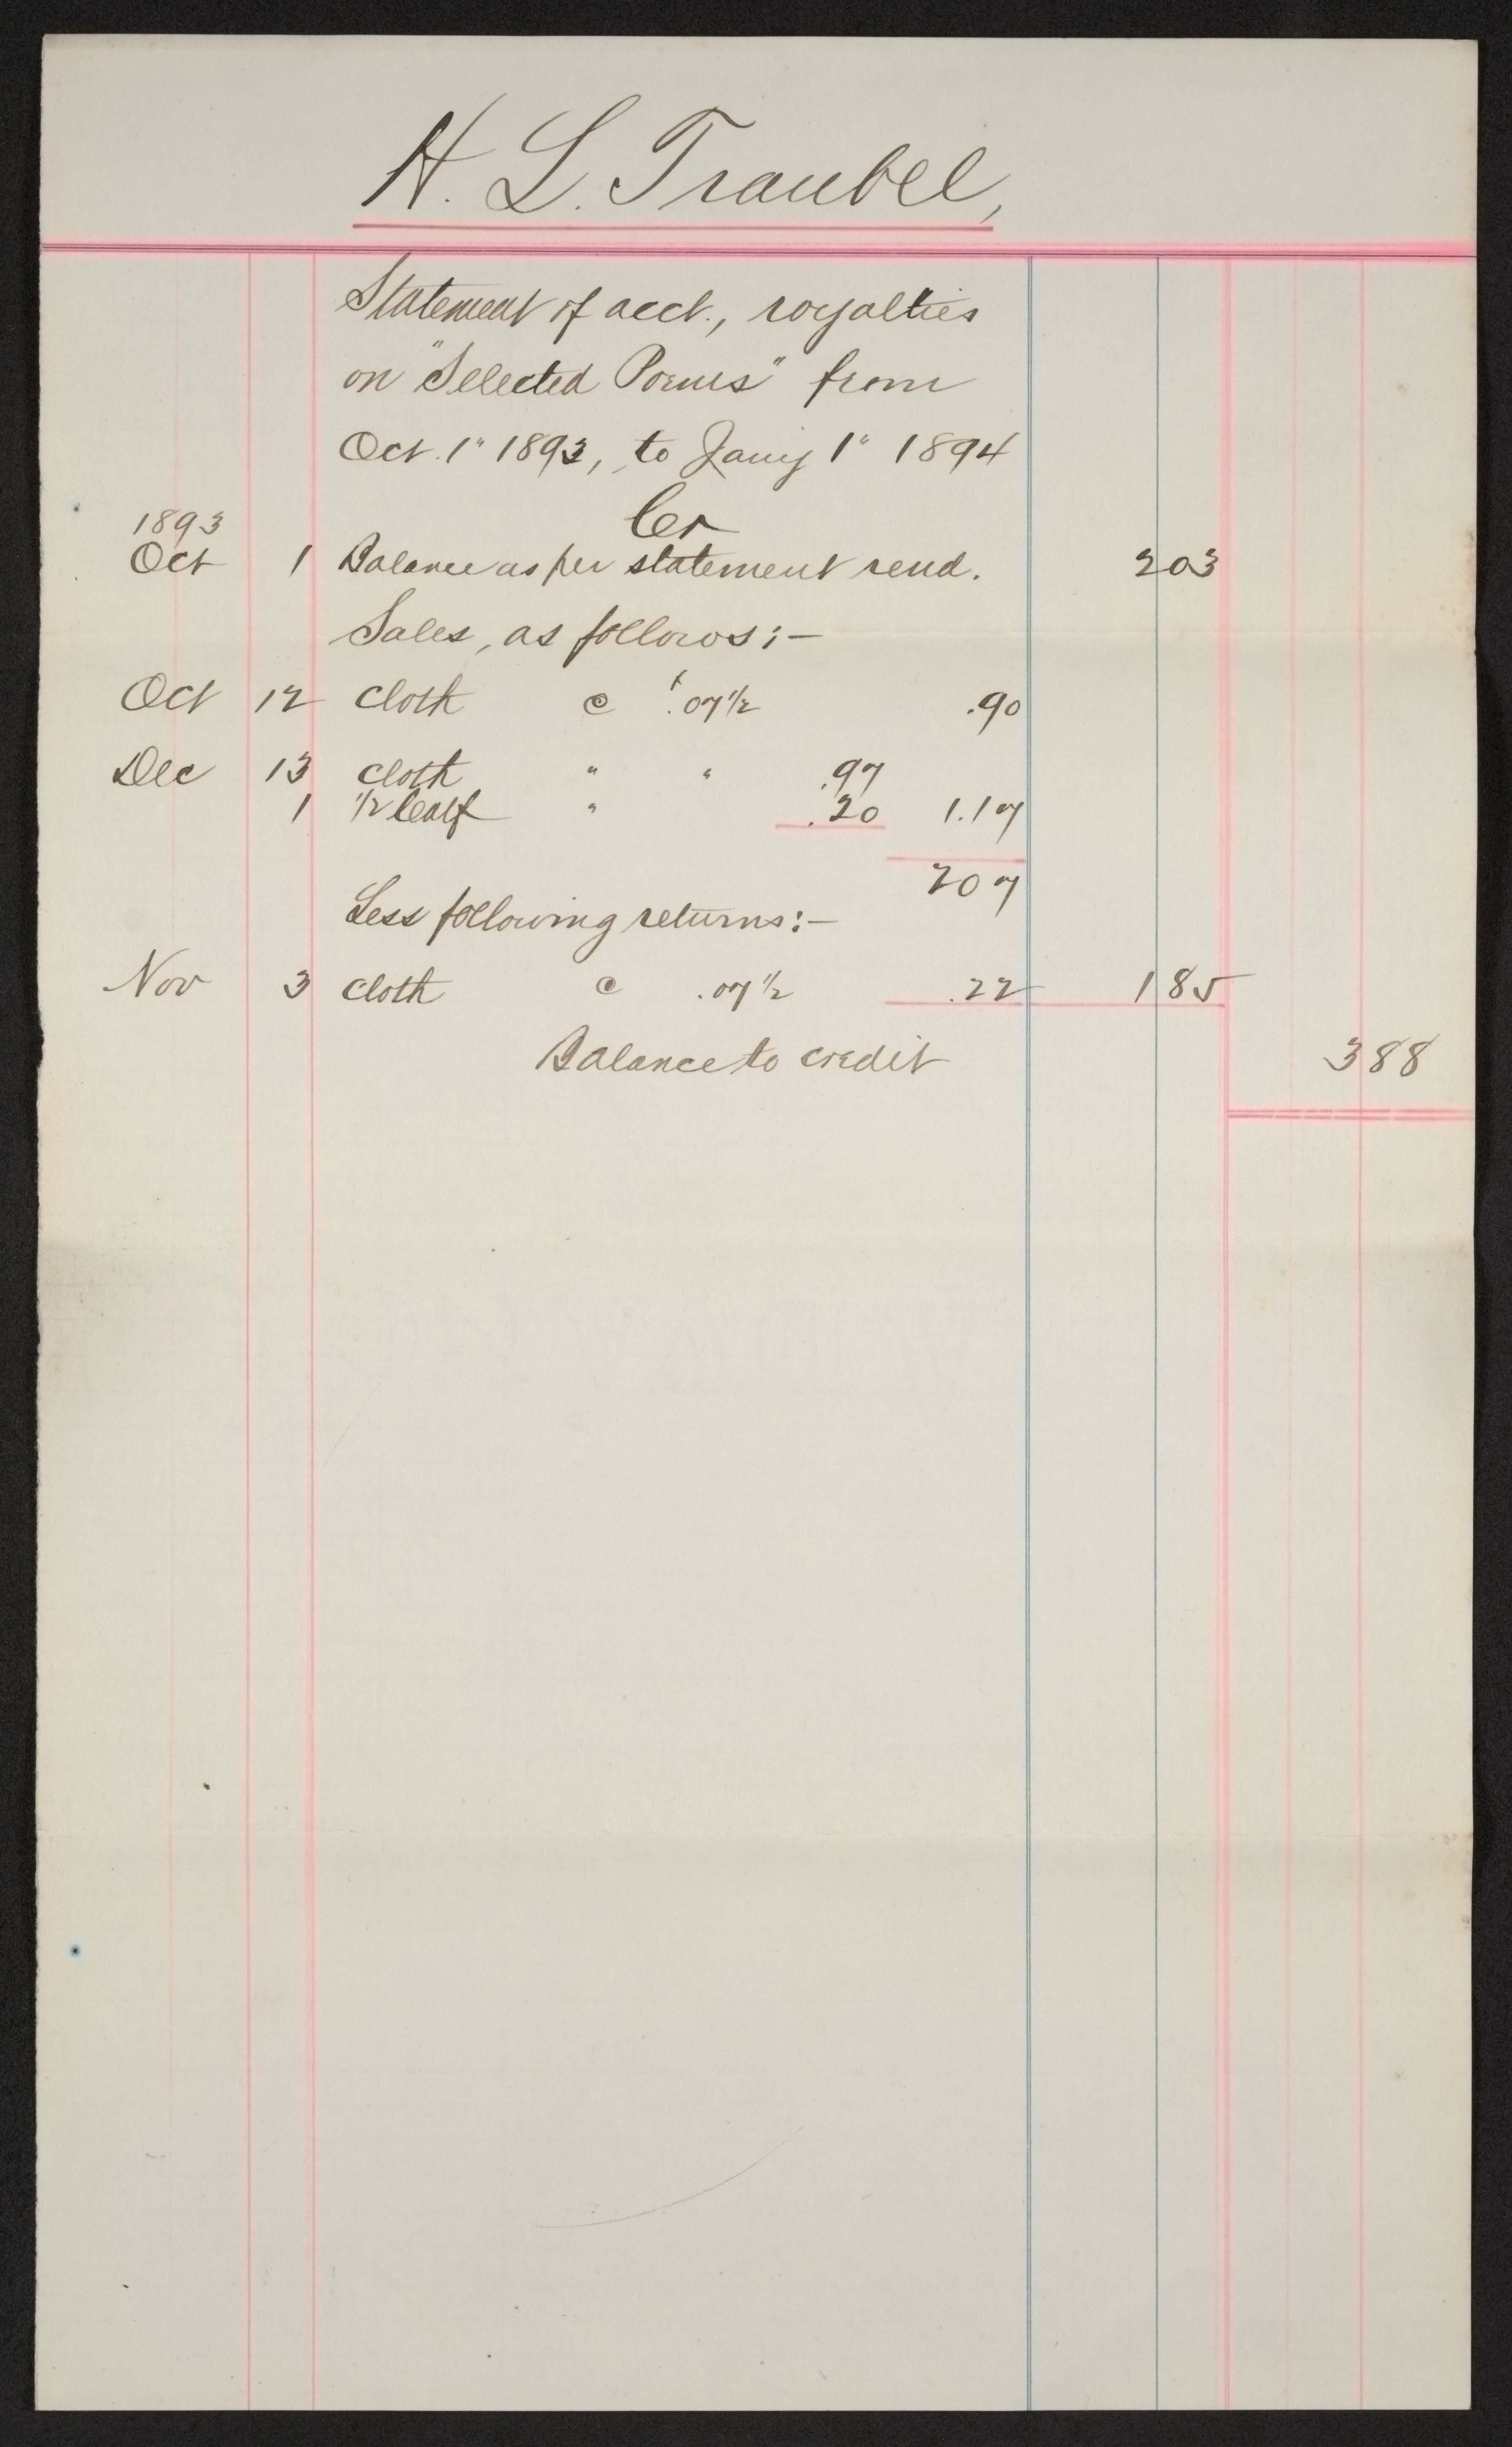 H. L. Traubel,
Statement of acct., royalties
on "Selected Poems" from
Oct. 1" 1893, to Jany 1" 1894
Cr
1893
Oct 1 Balance as per statement rend. 203
Sales, as follows:—
Oct 12 cloth @ .07 1/2 .90
Dec 13 cloth " " .97
1 1/2 calf " .20 1.17
207
Less following returns:—
Nov 3 cloth @ .07 1/2 .22 185
Balance to credit 388